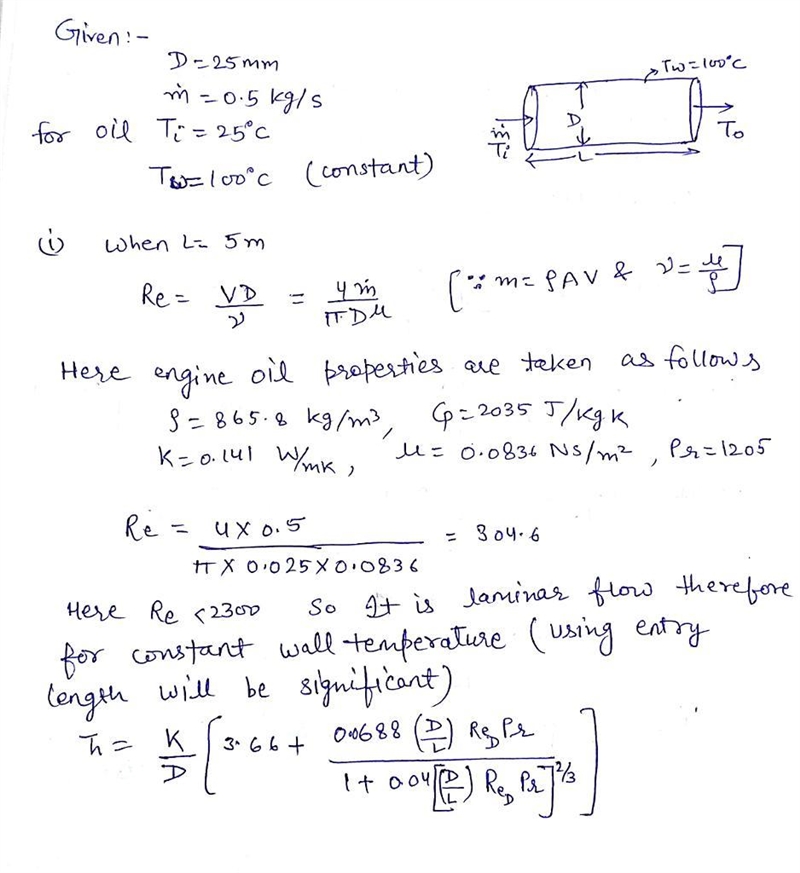 Given:-
D=25mm
ṁ = 0.5 kg/s
for oil Ti = 25°C
Tw=100°C (constant)
Tw=100°C
D
ṁ
Ti
L
To
(i) when L= 5m
Re = VD/ν = 4ṁ/πDμ [∵ m = ρAV & ν = μ/ρ]
Here engine oil properties are taken as follows
ρ = 865.8 kg/m³, Cp=2035 J/kgK
K=0.141 W/mK, μ= 0.0836 NS/m², Pr=1205
Re = 4X0.5/πX0.025X0.0836 = 304.6
Here Re <2300 so It is laminar flow therefore
for constant wall temperature (using entry
length will be significant)
h̄ = K/D [3.66 + 0.0688 (D/L) Re_D Pr / 1+ 0.04[(D/L) Re_D Pr]^2/3]